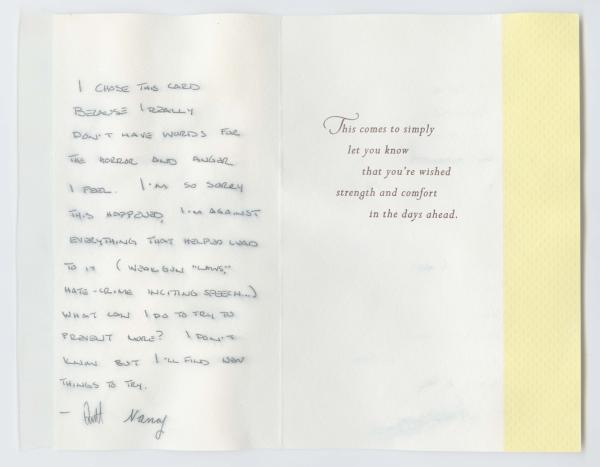 I CHOSE THIS CARD
BECAUSE I REALLY
DON'T HAVE WORDS FOR
THE HORROR AND ANGER
I FEEL. I'M SO SORRY
THIS HAPPENED. I'M AGAINST
EVERYTHING THAT HELPED LEAD
TO IT (WEAK GUN "LAWS,"
HATE-CRIME INCITING SPEECH...)
WHAT CAN I DO TO TRY TO
PREVENT MORE? I DON'T
KNOW BUT I'LL FIND NEW
THINGS TO TRY.
— Nancy
This comes to simply
let you know
that you're wished
strength and comfort
in the days ahead.